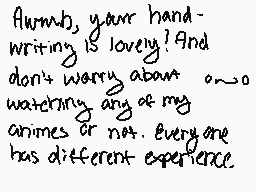 Awwh, your hand-
writing is lovely! And
don't worry about
watching any of my
animes or not. Every one
has different experience